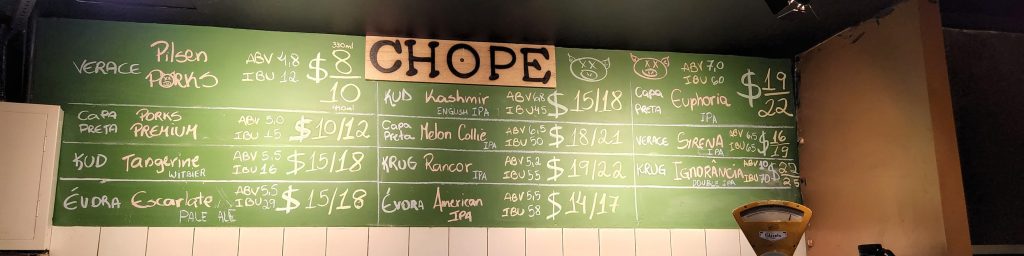 CHOPE
VERACE Pilsen PORKS ABV 4,8 IBU 12 $ 330ml 8
10
CAPA PRETA PORKS PREMIUM ABV 5.0 IBU 15 $10/12
KUD Tangerine WITBIER ABV 5.5 IBU 16 $15/18
ÉVORA Escarlate PALE ALE ABV 5,5 IBU 29 $15/18
KUD Kashmir ENGLISH IPA ABV 6,8 IBU 45 $15/18
CAPA PRETA Melon Collie IPA ABV 6,5 IBU 50 $18/21
KRUG Rancor IPA ABV 5,2 IBU 55 $19/22
ÉVORA American IPA ABV 5.5 IBU 58 $14/17
CAPA PRETA Euphoria IPA ABV 7,0 IBU 60 $19
22
VERACE SIRENA IPA ABV 6,5 IBU 65 $16
19
KRUG IGNORÂNCIA DOUBLE IPA IBU 70 $22
25